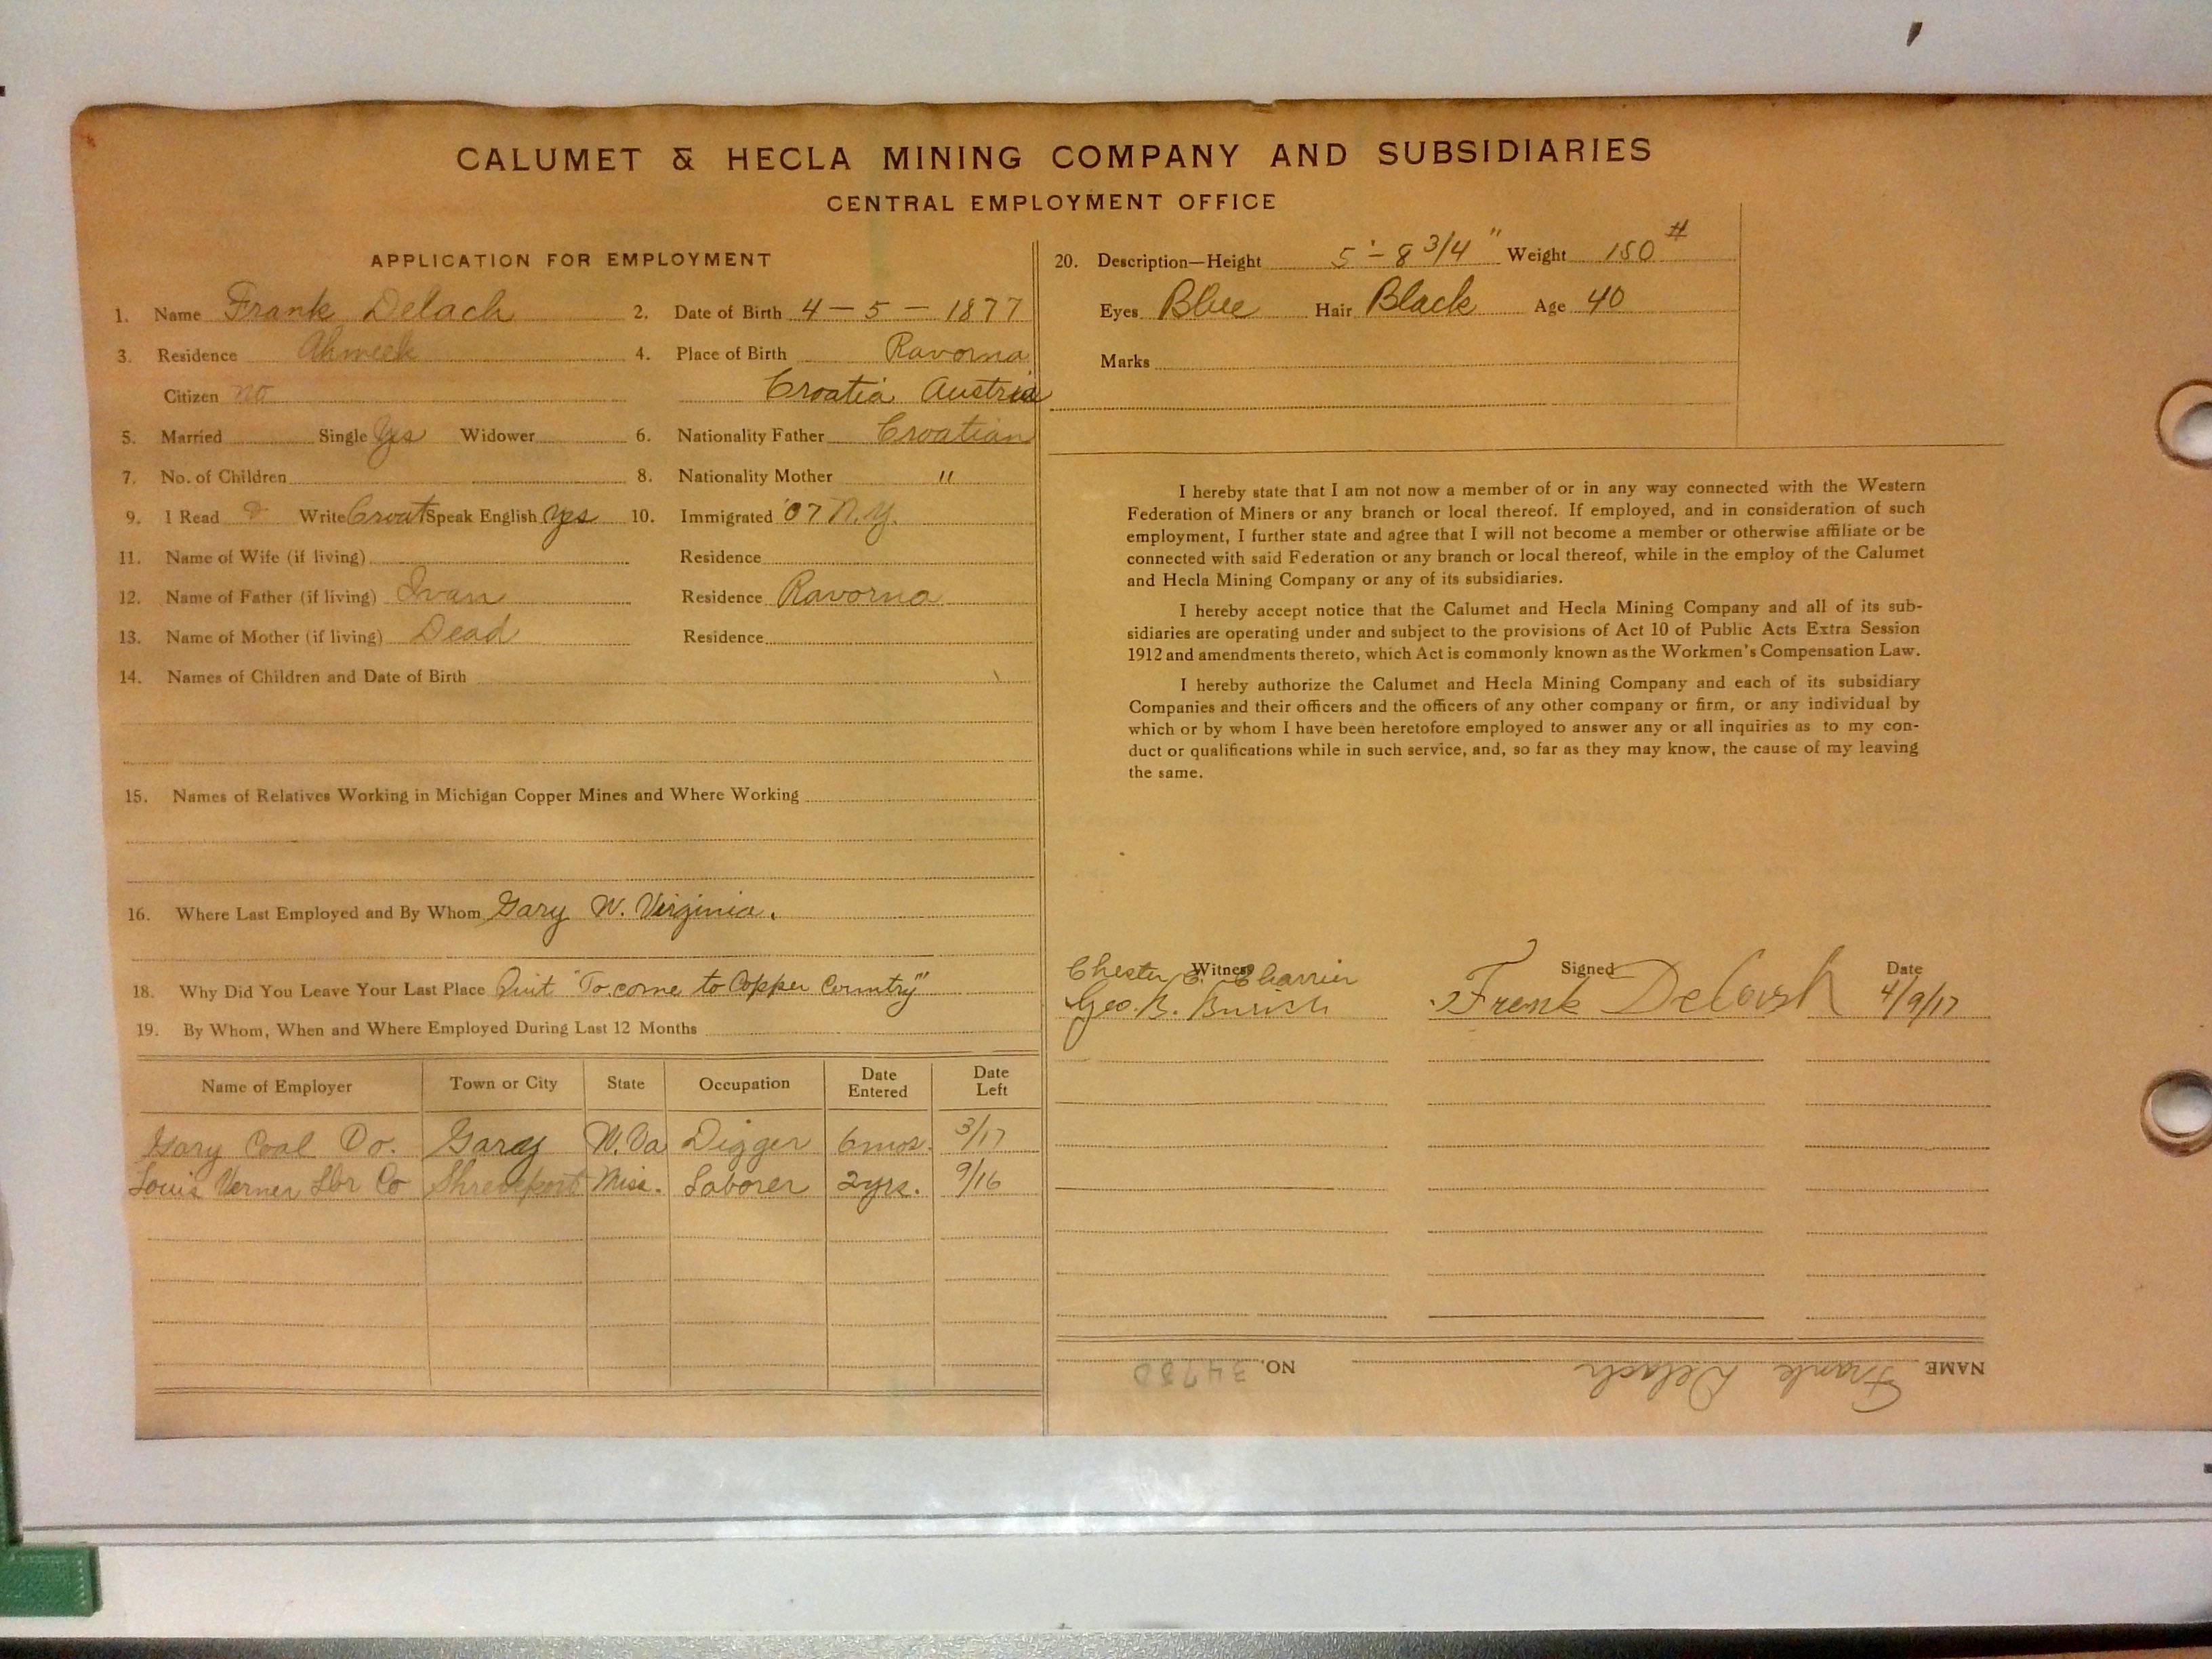 CALUMET & HECLA MINING COMPANY AND SUBSIDIARIES
CENTRAL EMPLOYMENT OFFICE
APPLICATION FOR EMPLOYMENT
1. Name Frank Delach 2. Date of Birth 4 - 5 - 1877
3. Residence Ahmeek 4. Place of Birth Ravorna
Citizen no Croatia Austria
5. Married Single Yes Widower 6. Nationality Father Croatian
7. No. of Children 8. Nationality Mother "
9. I Read & Write Croat Speak English Yes 10. Immigrated '07 N.Y.
11. Name of Wife (if living) Residence
12. Name of Father (if living) Ivan Residence Ravorna
13. Name of Mother (if living) Dead Residence
14. Names of Children and Date of Birth
15. Names of Relatives Working in Michigan Copper Mines and Where Working
16. Where Last Employed and By Whom Gary W. Virginia.
18. Why Did You Leave Your Last Place Quit "To come to Copper Country"
19. By Whom, When and Where Employed During Last 12 Months
Name of Employer Town or City State Occupation Date Entered Date Left
Gary Coal Co. Gary W. Va Digger 6 mos. 3/17
Louis Verner Lbr Co Shreveport Miss. Laborer 2 yrs. 9/16
20. Description—Height 5'-8 3/4" Weight 150#
Eyes Blue Hair Black Age 40
Marks
I hereby state that I am not now a member of or in any way connected with the Western
Federation of Miners or any branch or local thereof. If employed, and in consideration of such
employment, I further state and agree that I will not become a member or otherwise affiliate or be
connected with said Federation or any branch or local thereof, while in the employ of the Calumet
and Hecla Mining Company or any of its subsidiaries.
I hereby accept notice that the Calumet and Hecla Mining Company and all of its sub-
sidiaries are operating under and subject to the provisions of Act 10 of Public Acts Extra Session
1912 and amendments thereto, which Act is commonly known as the Workmen's Compensation Law.
I hereby authorize the Calumet and Hecla Mining Company and each of its subsidiary
Companies and their officers and the officers of any other company or firm, or any individual by
which or by whom I have been heretofore employed to answer any or all inquiries as to my con-
duct or qualifications while in such service, and, so far as they may know, the cause of my leaving
the same.
Witness Signed Date
Chester C. Charrier
Geo. B. Burish Frenk Delach 4/9/17
NAME Frank Delach NO. 34780